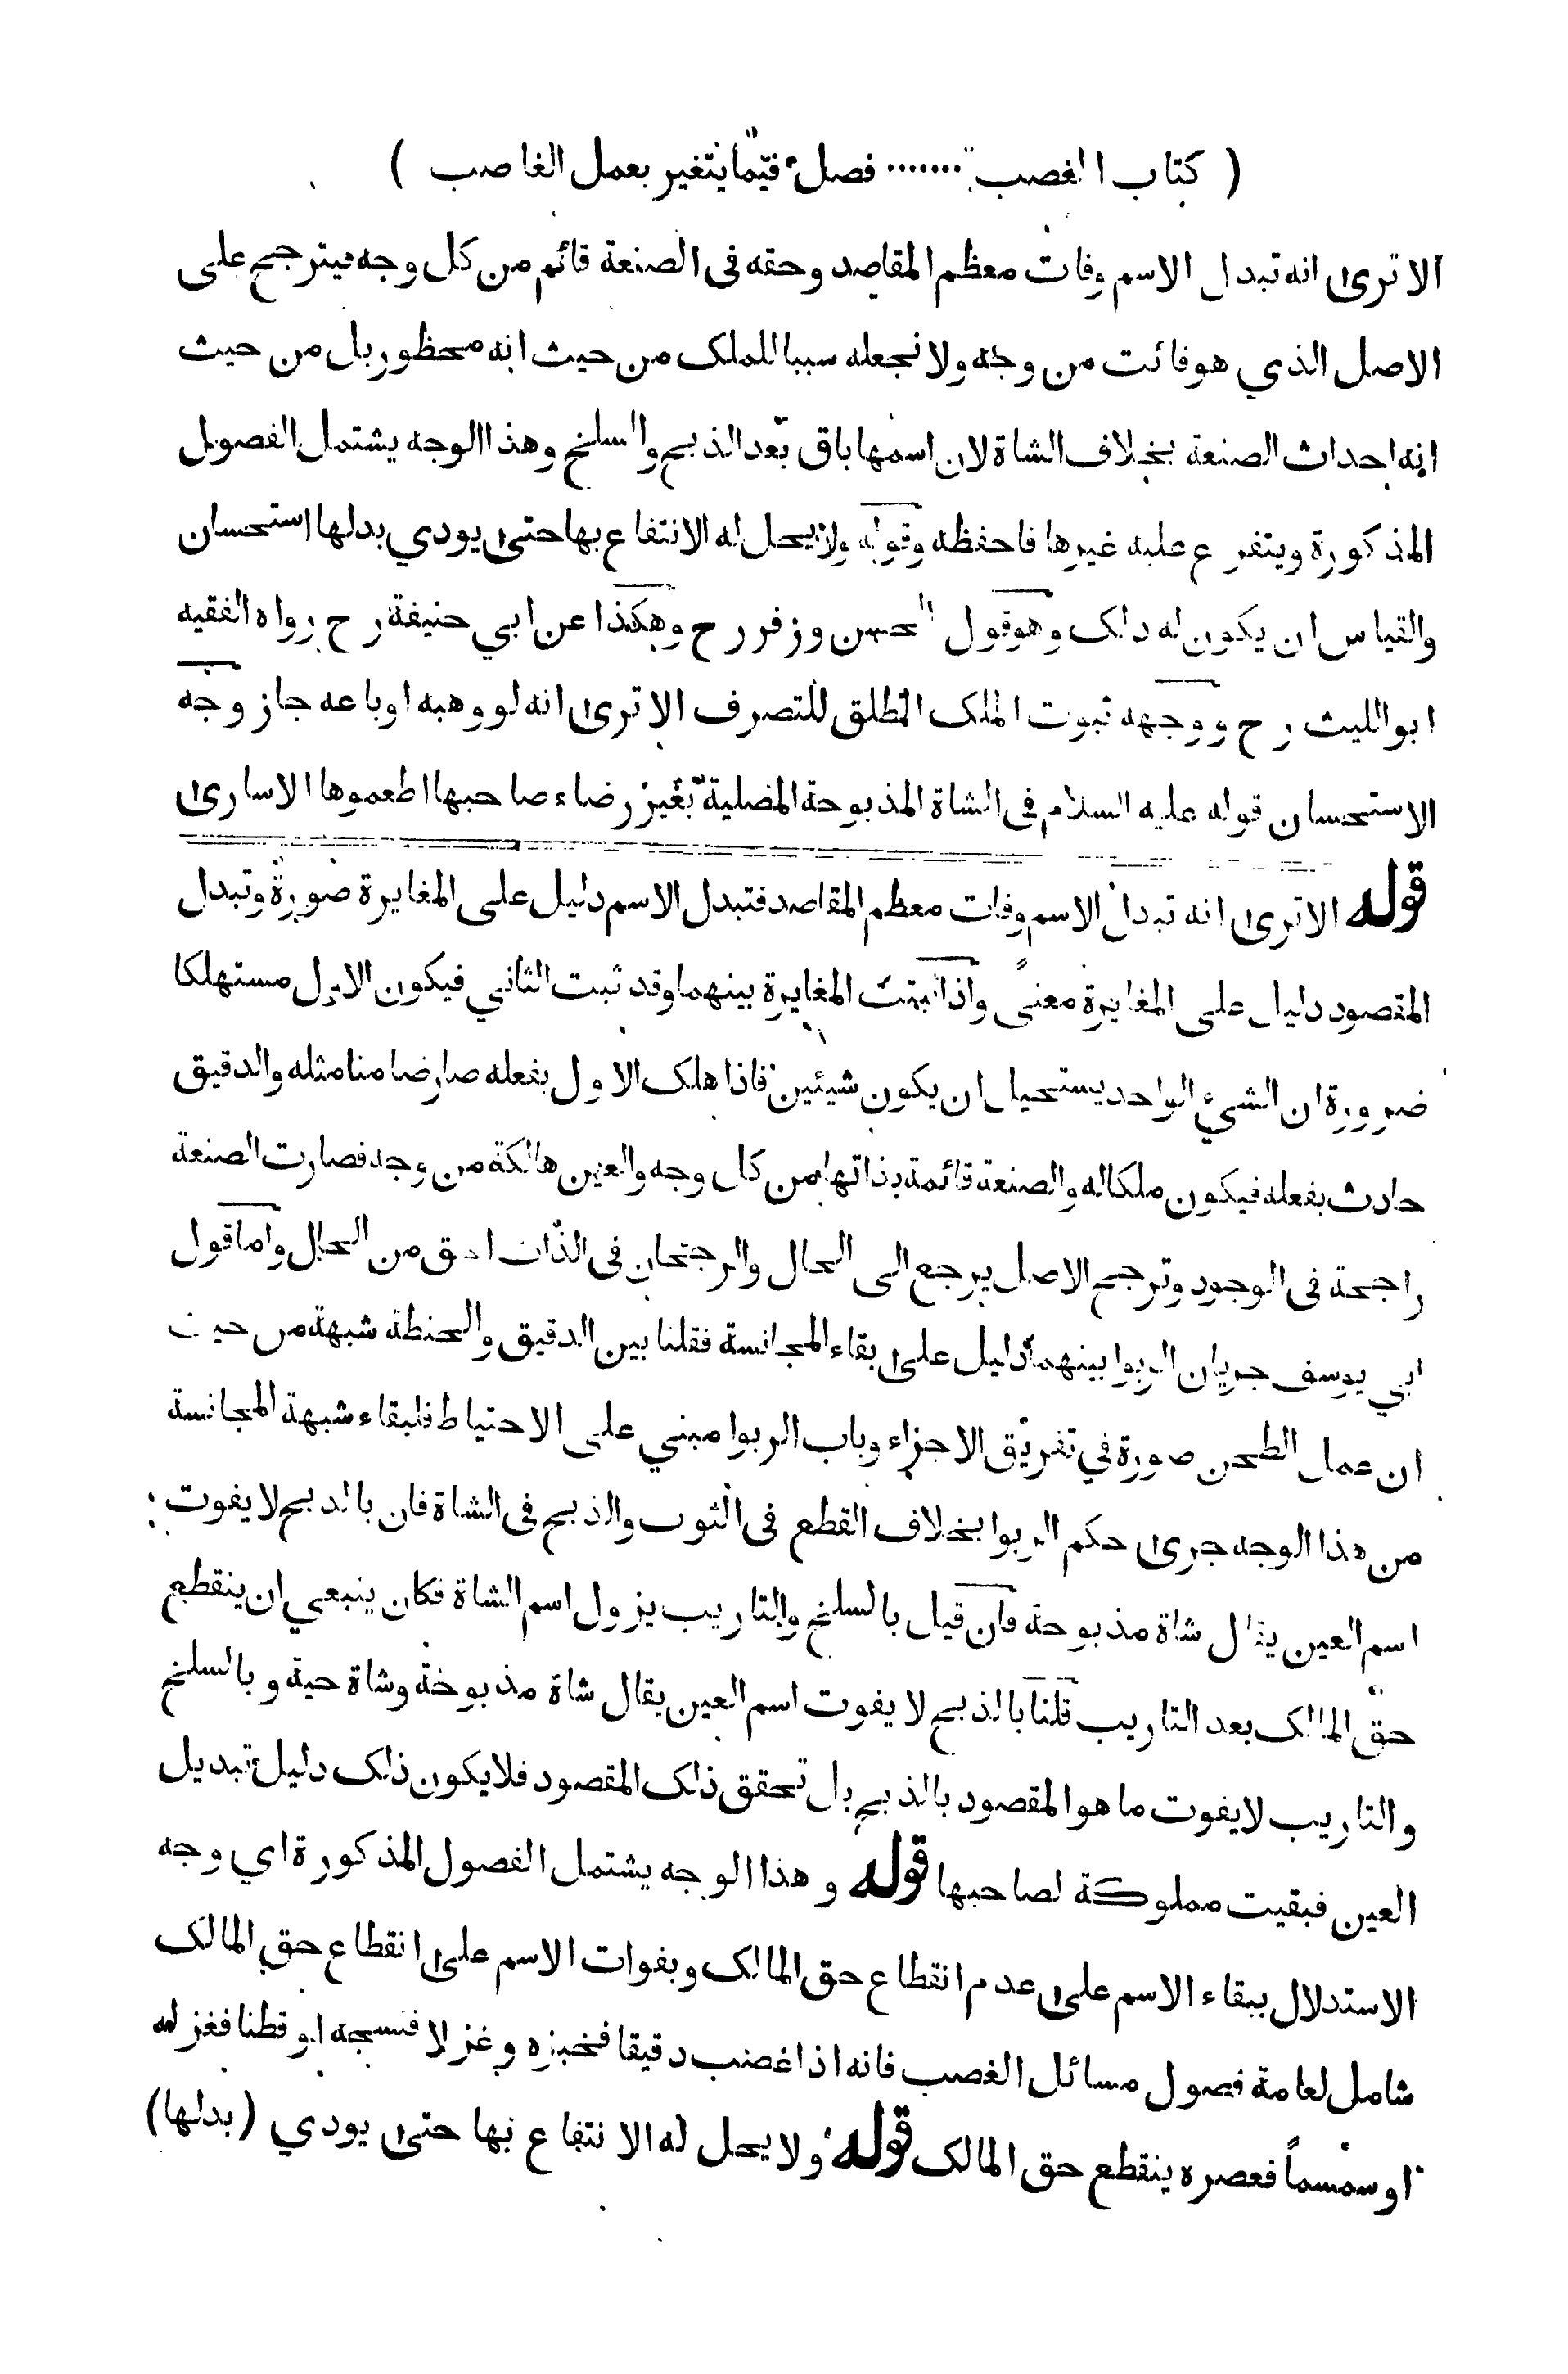 ( كتاب الغصب ....... فصل فيما يتغير بعمل الغاصب )
الا ترى انه تبدل الاسم وفات معظم المقاصد وحقه فى الصنعة قائم من كل وجه فيترجح على
الاصل الذي هو فائت من وجه ولا نجعله سببا للملك من حيث انه محظور بل من حيث
انه احداث الصنعة بخلاف الشاة لان اسمها باق بعد الذبح والسلخ وهذا الوجه يشتمل الفصول
المذكورة ويتفرع عليه غيرها فاحفظه وقوله ولا يحل له الانتفاع بها حتى يودي بدلها استحسان
والقياس ان يكون له ذلك وهو قول الحسن وزفر رح وهكذا عن ابي حنيفة رح رواه الفقيه
ابو الليث رح ووجهه ثبوت الملك المطلق للتصرف الا ترى انه لو وهبه او باعه جاز وجه
الاستحسان قوله عليه السلام فى الشاة المذبوحة المصلية بغير رضاء صاحبها اطعموها الاسارى
قوله الا ترى انه تبدل الاسم وفات معظم المقاصد فتبدل الاسم دليل على المغايرة صورة وتبدل
المقصود دليل على المغايرة معنىً واذا ثبتت المغايرة بينهما وقد ثبت الثاني فيكون الاول مستهلكا
ضرورة ان الشيء الواحد يستحيل ان يكون شيئين فاذا هلك الاول بفعله صار ضامنا مثله والدقيق
حادث بفعله فيكون ملكا له والصنعة قائمة بذاتها من كل وجه والعين هالكة من وجه فصارت الصنعة
راجحة فى الوجود وترجح الاصل يرجع الى الحال والرجحان فى الذات احق من الحال واما قول
ابي يوسف جريان الربوا بينهما دليل على بقاء المجانسة فقلنا بين الدقيق والحنطة شبهة من حيث
ان عمل الطحن صورة في تفريق الاجزاء وباب الربوا مبني على الاحتياط فلبقاء شبهة المجانسة
من هذا الوجه جرى حكم الربوا بخلاف القطع فى الثوب والذبح فى الشاة فان بالذبح لا يفوت
اسم العين يقال شاة مذبوحة فان قيل بالسلخ والتاريب يزول اسم الشاة فكان ينبغي ان ينقطع
حق المالك بعد التاريب قلنا بالذبح لا يفوت اسم العين يقال شاة مذبوحة وشاة حية وبالسلخ
والتاريب لا يفوت ما هو المقصود بالذبح بل تحقق ذلك المقصود فلا يكون ذلك دليل تبديل
العين فبقيت مملوكة لصاحبها قوله وهذا الوجه يشتمل الفصول المذكورة اي وجه
الاستدلال ببقاء الاسم على عدم انقطاع حق المالك وبفوات الاسم على انقطاع حق المالك
شامل لعامة فصول مسائل الغصب فانه اذا غصب دقيقا فخبزه وغزلا فنسجه او قطنا فغزله
او سمسماً فعصره ينقطع حق المالك قوله ولا يحل له الانتفاع بها حتى يودي (بدلها)